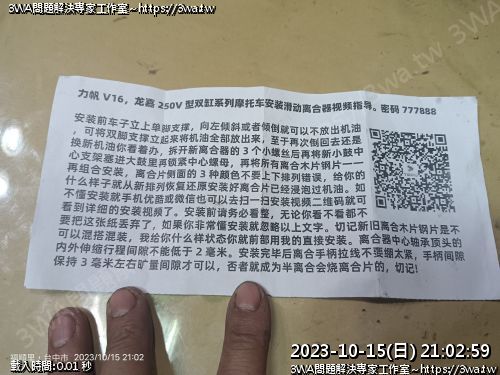 3WA問題解決專家工作室~https://3wa.tw
力帆 V16，龙嘉 250V 型双缸系列摩托车安装滑动离合器视频指导。密码 777888
安装前车子立上单脚支撑，向左倾斜或者倾倒就可以不放出机油
，可将双脚支撑立起来将机油全部放出来，至于再次倒回去还是
换新机油你看着办，拆开新离合器的 3 个小螺丝后再将新小鼓中
心支架塞进大鼓里再锁紧中心螺母，再将所有离合木片钢片一一
再组合安装，离合片侧面的 3 种颜色不要上下排列错误，给你的
什么样子就从新排列恢复还原安装好离合片已经浸泡过机油。如
不懂安装就手机优酷或微信也可以去扫一扫安装视频二维码就可
看到详细的安装视频了。安装前请务必看董，无论你看不看都不
要把这张纸丢弃了，如果你非常懂安装就忽略以上文字。切记新旧离合木片钢片是不
可以混搭混装，我给你什么样状态你就前部用我的直接安装。离合器中心轴承顶头的
内外伸缩行程间隙不能低于 2 毫米。安装完毕后离合手柄拉线不要绷太紧，手柄间隙
保持 3 毫米左右旷量间隙才可以，否者就成为半离合会烧离合片的，切记!
福順里，台中市 2023/10/15 21:02
載入時間:0.01 秒
2023-10-15(日) 21:02:59
3WA問題解決專家工作室~https://3wa.tw